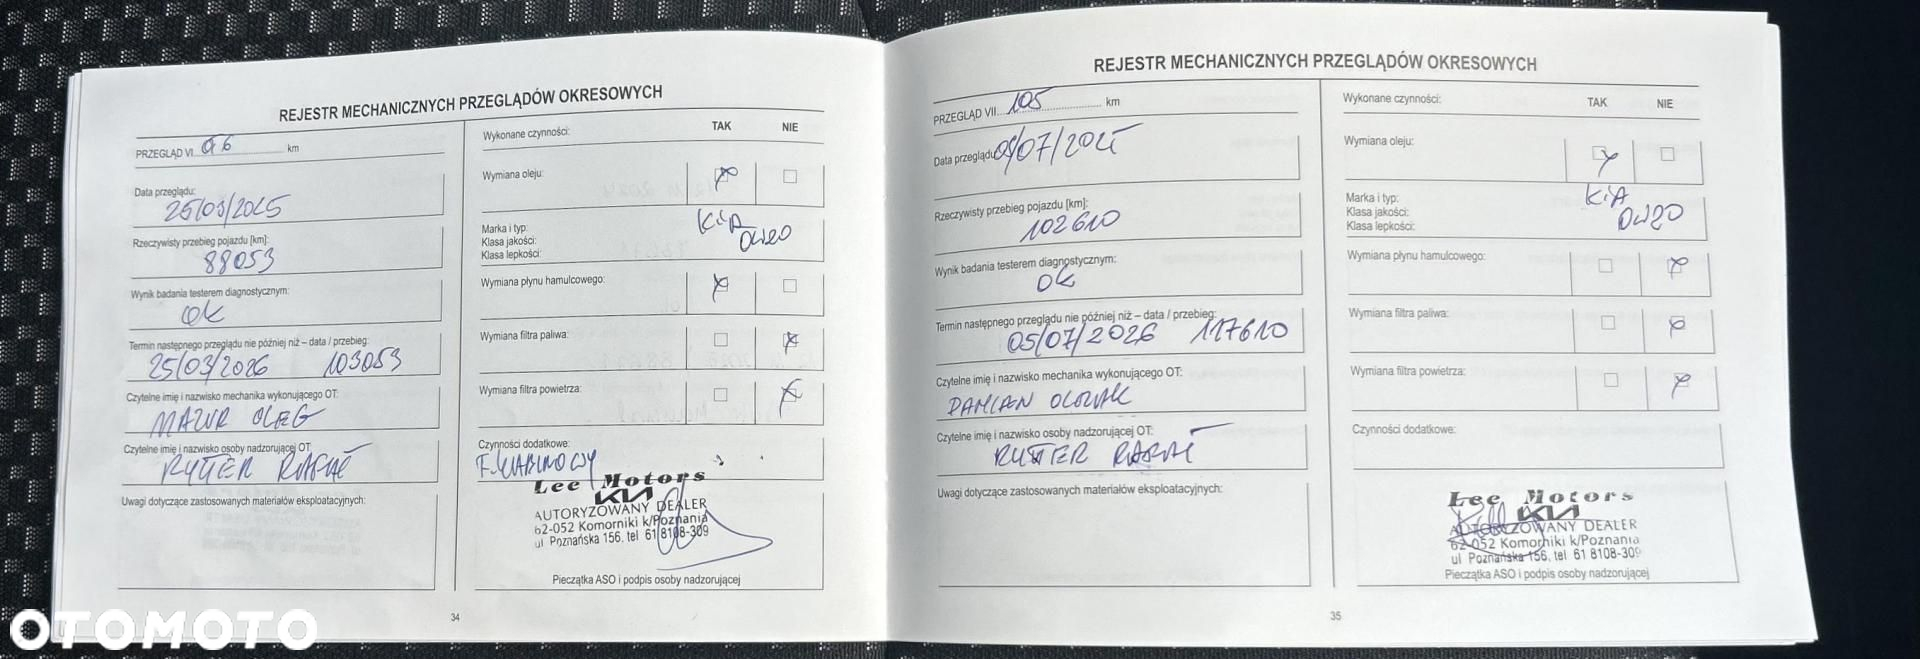 REJESTR MECHANICZNYCH PRZEGLĄDÓW OKRESOWYCH
PRZEGLĄD VI 96 km
Data przeglądu:
25/03/2025
Rzeczywisty przebieg pojazdu [km]:
88053
Wynik badania testerem diagnostycznym:
OK
Termin następnego przeglądu nie później niż – data / przebieg:
25/03/2026 103053
Czytelne imię i nazwisko mechanika wykonującego OT:
MAZUR OLEG
Czytelne imię i nazwisko osoby nadzorującej OT:
RYTTER RAFAŁ
Uwagi dotyczące zastosowanych materiałów eksploatacyjnych:
Wykonane czynności: TAK NIE
Wymiana oleju:
Marka i typ: KIA
Klasa jakości: 0W20
Klasa lepkości:
Wymiana płynu hamulcowego:
Wymiana filtra paliwa:
Wymiana filtra powietrza:
Czynności dodatkowe:
F. KABINOWY
Lee Motors
KIA
AUTORYZOWANY DEALER
62-052 Komorniki k/Poznania
ul Poznańska 156, tel 61 8108-309
Pieczątka ASO i podpis osoby nadzorującej
34
REJESTR MECHANICZNYCH PRZEGLĄDÓW OKRESOWYCH
PRZEGLĄD VII 105 km
Data przeglądu: /07/2025
Rzeczywisty przebieg pojazdu [km]:
102610
Wynik badania testerem diagnostycznym:
OK
Termin następnego przeglądu nie później niż – data / przebieg:
05/07/2026 117610
Czytelne imię i nazwisko mechanika wykonującego OT:
DAMIAN
Czytelne imię i nazwisko osoby nadzorującej OT:
RYTTER RAFAŁ
Uwagi dotyczące zastosowanych materiałów eksploatacyjnych:
Wykonane czynności: TAK NIE
Wymiana oleju:
Marka i typ: KIA
Klasa jakości: 0W20
Klasa lepkości:
Wymiana płynu hamulcowego:
Wymiana filtra paliwa:
Wymiana filtra powietrza:
Czynności dodatkowe:
Lee Motors
KIA
AUTORYZOWANY DEALER
62-052 Komorniki k/Poznania
ul Poznańska 156, tel 61 8108-309
Pieczątka ASO i podpis osoby nadzorującej
35
OTOMOTO